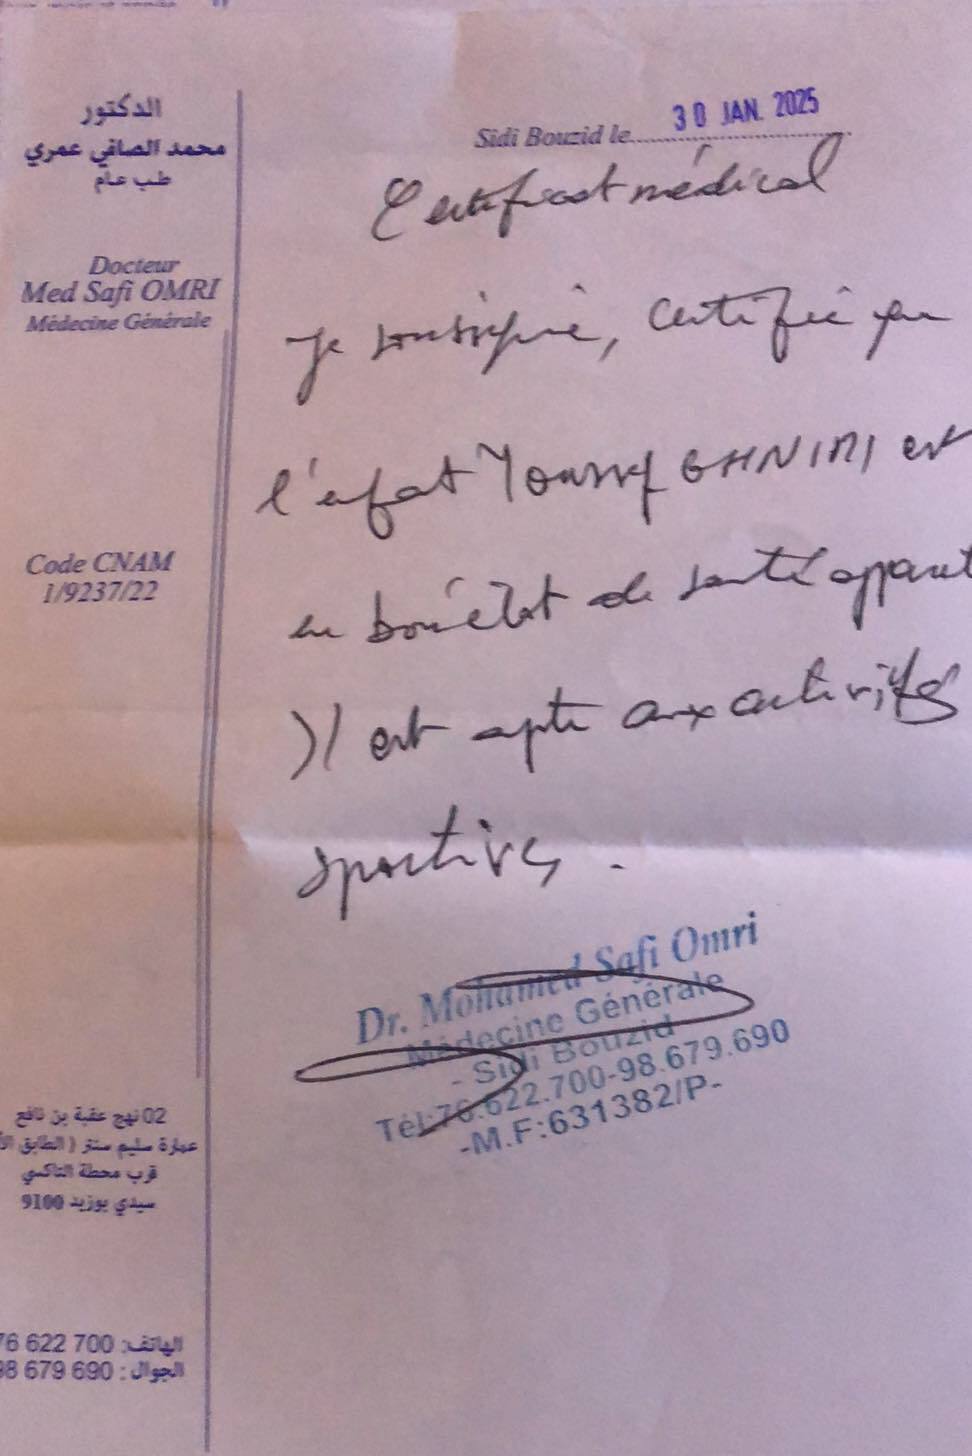 الدكتور
محمد الصافي عمري
طب عام
Docteur
Med Safi OMRI
Médecine Générale
Code CNAM
1/9237/22
02 نهج عقبة بن نافع
عمارة سليم سنتر ( الطابق
قرب محطة التاكسي
سيدي بوزيد 9100
الهاتف: 76 622 700
الجوال : 98 679 690
Sidi Bouzid le 30 JAN. 2025
Certificat médical
Je soussigné, certifie que
l'enfant Youssef GHNIMI est
en bon état de santé apparent
Il est apte aux activités
sportives.
Dr. Mohamed Safi Omri
Médecine Générale
- Sidi Bouzid
Tél:76.622.700-98.679.690
-M.F:631382/P-